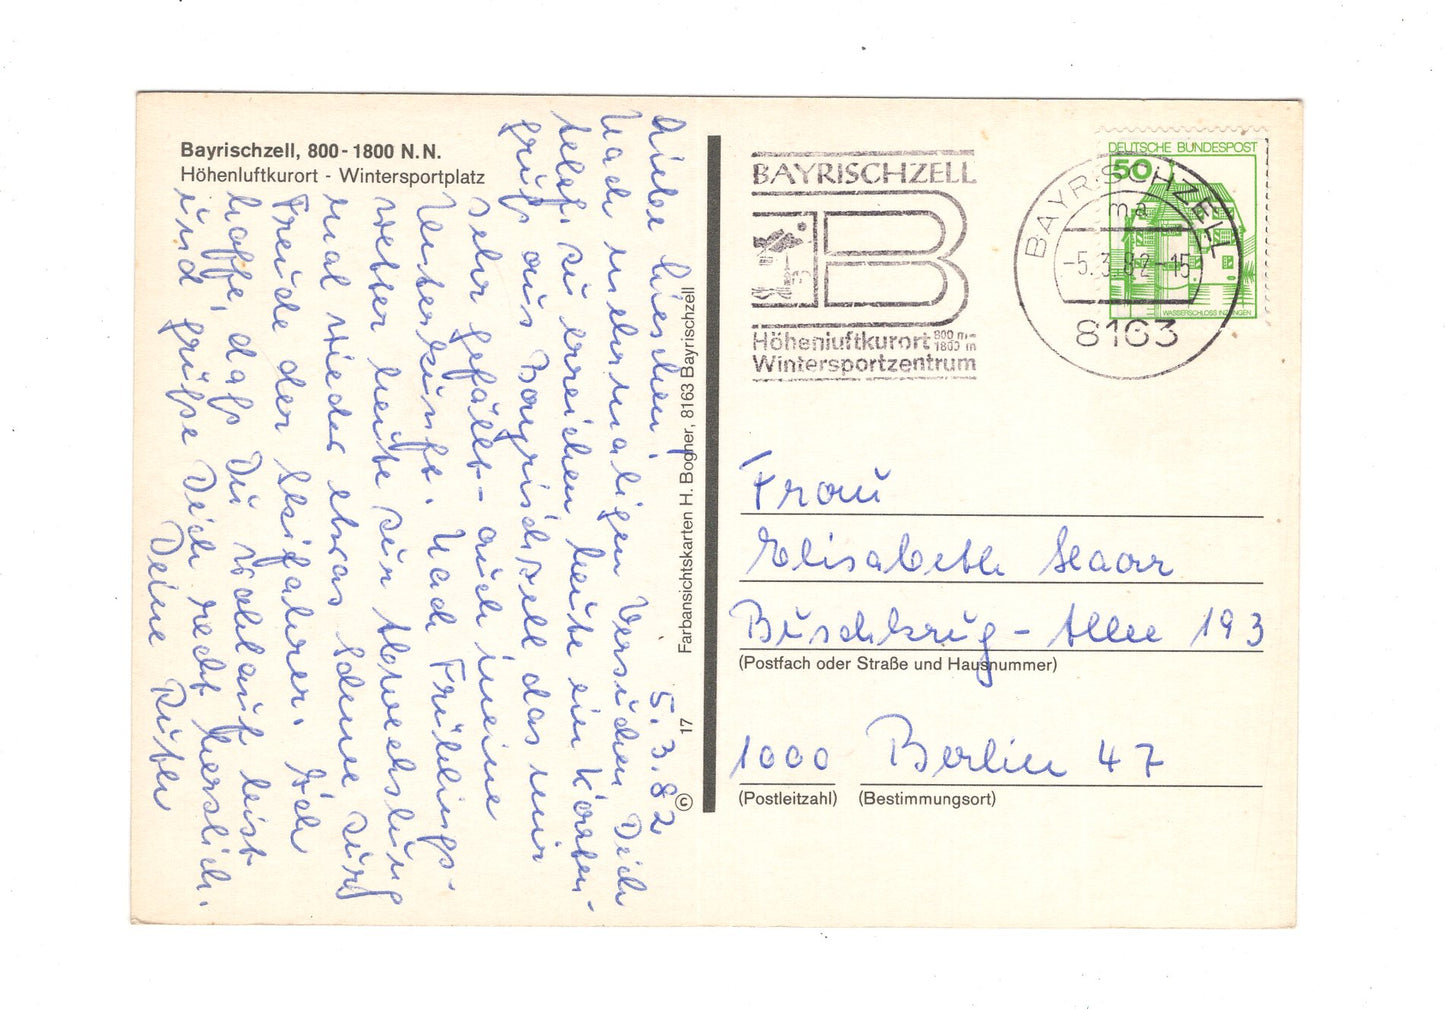 Bayrischzell, 800-1800 N.N.
Höhenluftkurort - Wintersportplatz
5.3.82
Liebe Lieschen!
Nach mehrmaligen Versuchen Dich
telef. zu erreichen, heute ein Karten-
gruß aus Bayrischzell das mir
sehr gefällt - auch meine
Unterkunft. Nach Frühlings-
wetter heute zur Abwechslung
mal wieder etwas Schnee zur
Freude der Skifahrer. Ich
hoffe, daß Du wohlauf bist
und grüße Dich recht herzlich.
Deine Ruth
Farbansichtskarten H. Bogner, 8163 Bayrischzell
17 ©
BAYRISCHZELL
B
Höhenluftkurort 800 m-
1800 m
Wintersportzentrum
BAYRISCHZELL
ma
-5.3.82-15
8163
DEUTSCHE BUNDESPOST
50
WASSERSCHLOSS INZLINGEN
Frau
Elisabeth
Buschkrug-Allee 193
(Postfach oder Straße und Hausnummer)
1000 Berlin 47
(Postleitzahl) (Bestimmungsort)